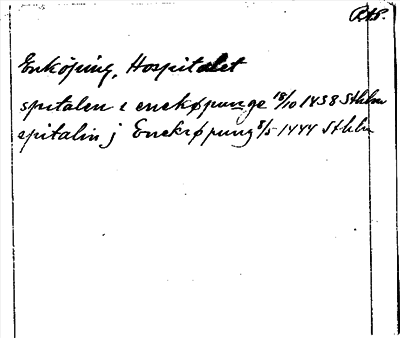 Enköping, Hospitalet
spitalen i enekøpunge 18/10 1438 Sthlm
spitalin j Enekøpung 8/5 1444 Sthlm